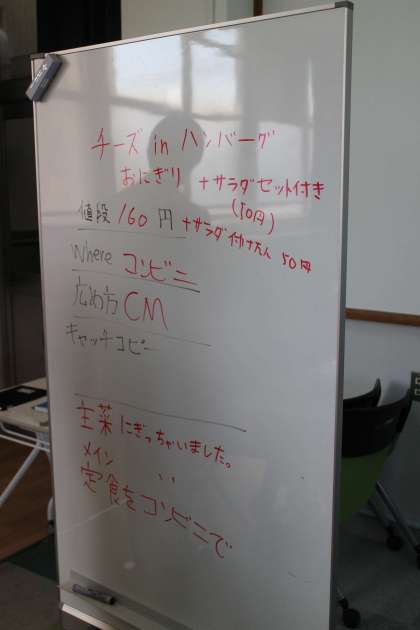 チーズ in ハンバーグ
おにぎり + サラダセット付き
(10円)
値段 160 円 + サラダ付けたん 50円
Where コンビニ
広め方 CM
キャッチコピー
主菜 にぎっちゃいました。
メイン 〃
定食をコンビニで